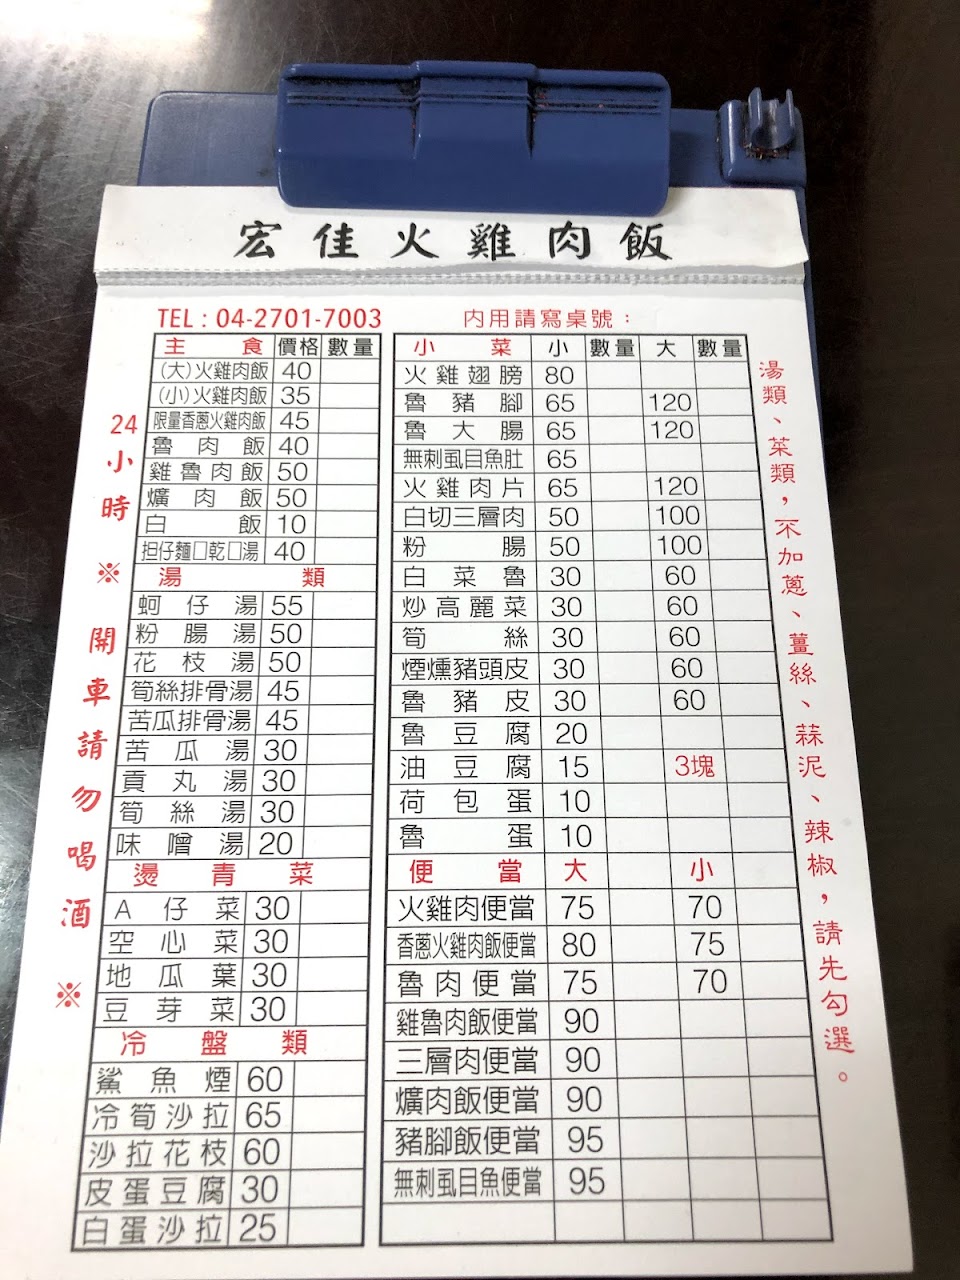 宏佳火雞肉飯
TEL : 04-2701-7003
內用請寫桌號：
主食 價格 數量
(大)火雞肉飯 40
(小)火雞肉飯 35
限量香蔥火雞肉飯 45
魯肉飯 40
雞魯肉飯 50
爌肉飯 50
白飯 10
担仔麵□乾□湯 40
湯類
蚵仔湯 55
粉腸湯 50
花枝湯 50
筍絲排骨湯 45
苦瓜排骨湯 45
苦瓜湯 30
貢丸湯 30
筍絲湯 30
味噌湯 20
燙青菜
A仔菜 30
空心菜 30
地瓜葉 30
豆芽菜 30
冷盤類
鯊魚煙 60
冷筍沙拉 65
沙拉花枝 60
皮蛋豆腐 30
白蛋沙拉 25
小菜 小 數量 大 數量
火雞翅膀 80
魯豬腳 65 120
魯大腸 65 120
無刺虱目魚肚 65
火雞肉片 65 120
白切三層肉 50 100
粉腸 50 100
白菜魯 30 60
炒高麗菜 30 60
筍絲 30 60
煙燻豬頭皮 30 60
魯豬皮 30 60
魯豆腐 20
油豆腐 15 3塊
荷包蛋 10
魯蛋 10
便當 大 小
火雞肉便當 75 70
香蔥火雞肉飯便當 80 75
魯肉便當 75 70
雞魯肉飯便當 90
三層肉便當 90
爌肉飯便當 90
豬腳飯便當 95
無刺虱目魚便當 95
24小時 ※ 開車請勿喝酒 ※
湯類、菜類，不加蔥、薑絲、蒜泥、辣椒，請先勾選。